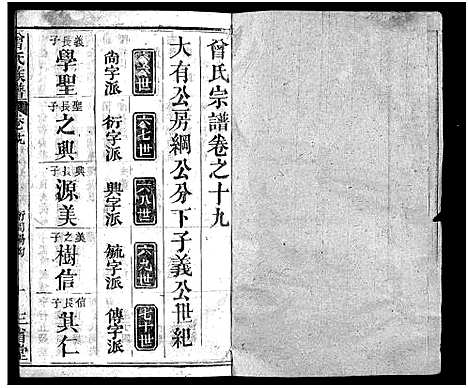 曾氏宗譜卷之十九
大有公房綱公分下子義公世紀
六六世 尚字派
六七世 衍字派
六八世 興字派
六九世 毓字派
七十世 傳字派
義長子 學聖
聖長子 之典
典長子 源美
美之子 樹信
信長子 其仁
曾氏族譜